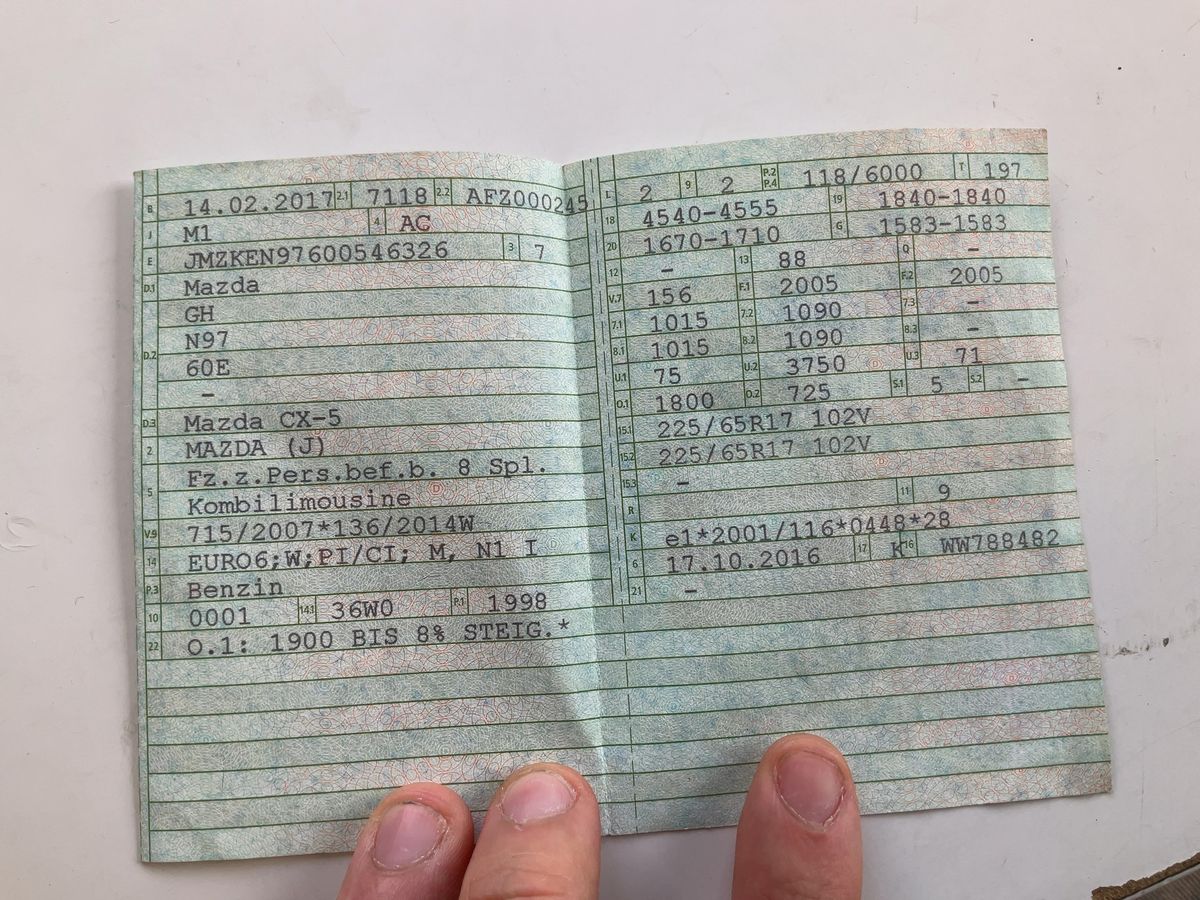 B 14.02.2017 2.1 7118 2.2 AFZ000245
J M1 4 AC
E JMZKEN97600546326 3 7
D.1 Mazda
GH
D.2 N97
60E
–
D.3 Mazda CX-5
2 MAZDA (J)
5 Fz.z.Pers.bef.b. 8 Spl.
Kombilimousine
V.9 715/2007*136/2014W
14 EURO6;W;PI/CI; M, N1 I
P.3 Benzin
10 0001 14.1 36W0 P.1 1998
22 O.1: 1900 BIS 8% STEIG.*
L 2 9 2 P.2 P.4 118/6000 T 197
18 4540-4555 19 1840-1840
20 1670-1710 G 1583-1583
12 – 13 88 Q –
V.7 156 F.1 2005 F.2 2005
7.1 1015 7.2 1090 7.3 –
8.1 1015 8.2 1090 8.3 –
U.1 75 U.2 3750 U.3 71
O.1 1800 O.2 725 S.1 5 S.2 –
15.1 225/65R17 102V
15.2 225/65R17 102V
15.3 –
R 11 9
K e1*2001/116*0448*28
6 17.10.2016 17 K 16 WW788482
21 –